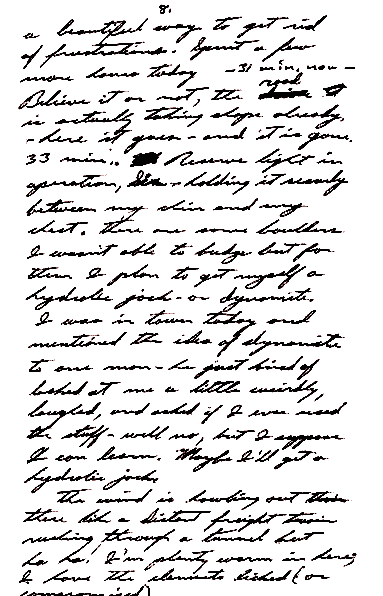 8.
a beautiful way to get rid
of frustrations. Spent a few
more hours today -31 min. now -
road
Believe it or not, the it
is actually taking slope already.
- here it goes - and it is gone.
33 min.. Reserve light in
operation, - holding it securely
between my chin and my
chest. There are some boulders
I wasn't able to budge but for
them I plan to get myself a
hydrolic jack - or dynamite.
I was in town today and
mentioned the idea of dynamite
to one man - he just kind of
looked at me a little weirdly,
laughed, and asked if I ever used
the stuff - well no, but I suppose
I can learn. Maybe I'll get a
hydrolic jack.
The wind is howling out
there like a distant freight train
rushing through a tunnel but
ha ha. I'm plenty warm in here;
I have the elements licked (or
compromised)